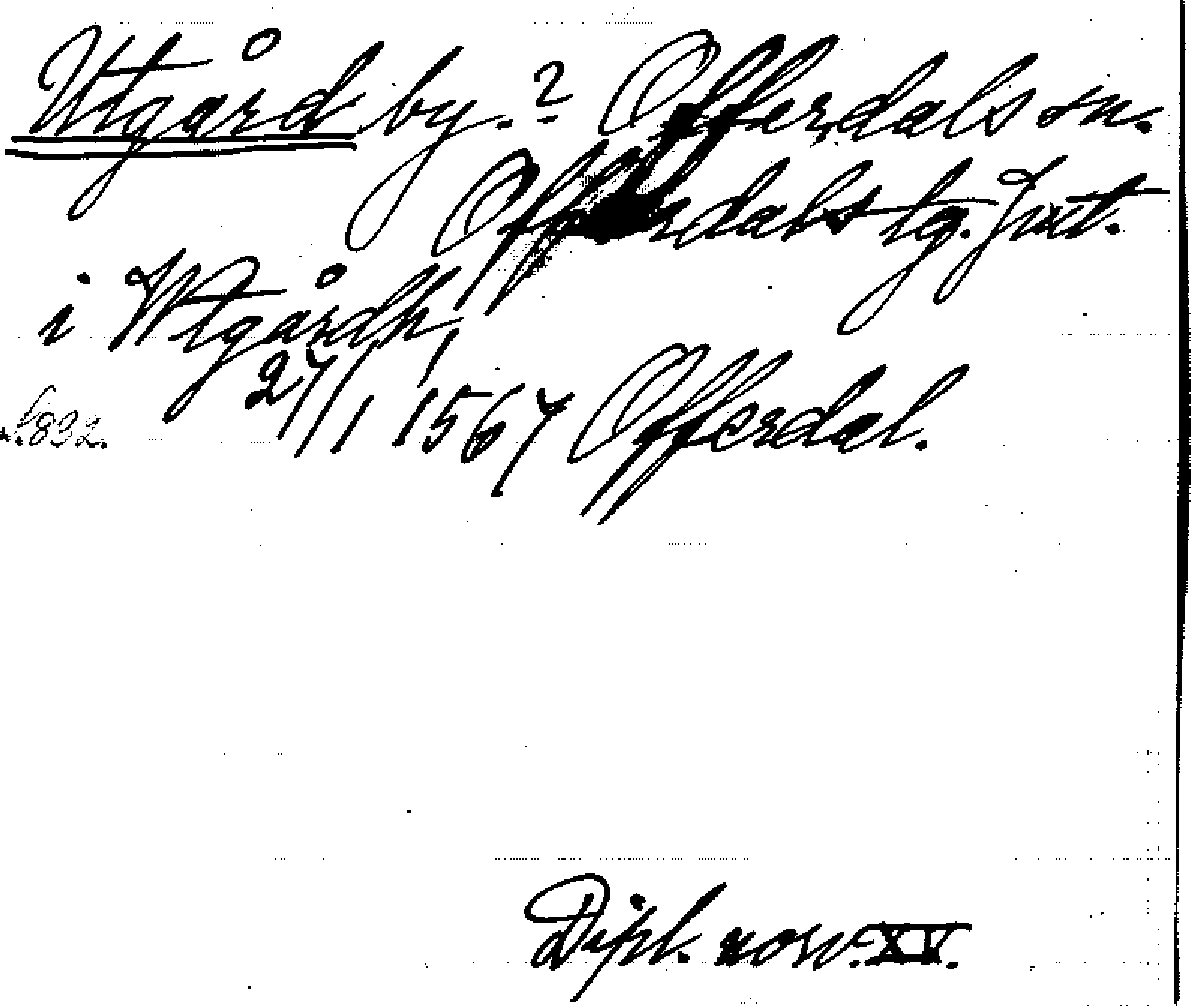 Utgård by.? Offerdals sn.
Offerdals tg. Jmt.
i Wtgårdh,
27/1 1567 Offerdal.
s. 892.
Dipl. norv. XV.